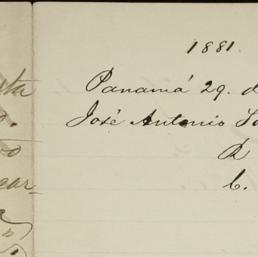 1881.
Panamá 29. d
José Antonio
R
C.
ta
o.
car-